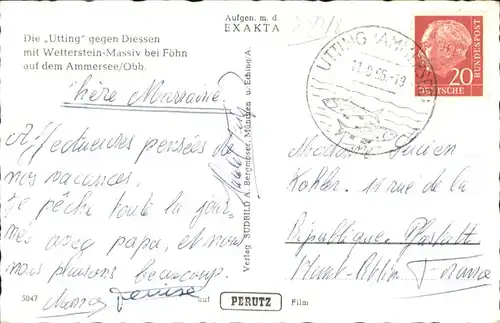 Die „Utting" gegen Diessen
mit Wetterstein-Massiv bei Föhn
auf dem Ammersee/Obb.
Aufgen. m. d.
EXAKTA
Chère Marraine,
Affectueuses pensées de
nos vacances.
Je pêche toute la jour-
née avec papa, et nous
nous plaisons beaucoup.
Denise
5047
auf PERUTZ Film
Verlag SÜDBILD A. Bergmoser, München u. Eching A.
UTTING AMMERSEE
20
DEUTSCHE
BUNDESPOST
Madame Lucien
Kohler. 11 rue de la
République Pfastatt
Haut-Rhin France